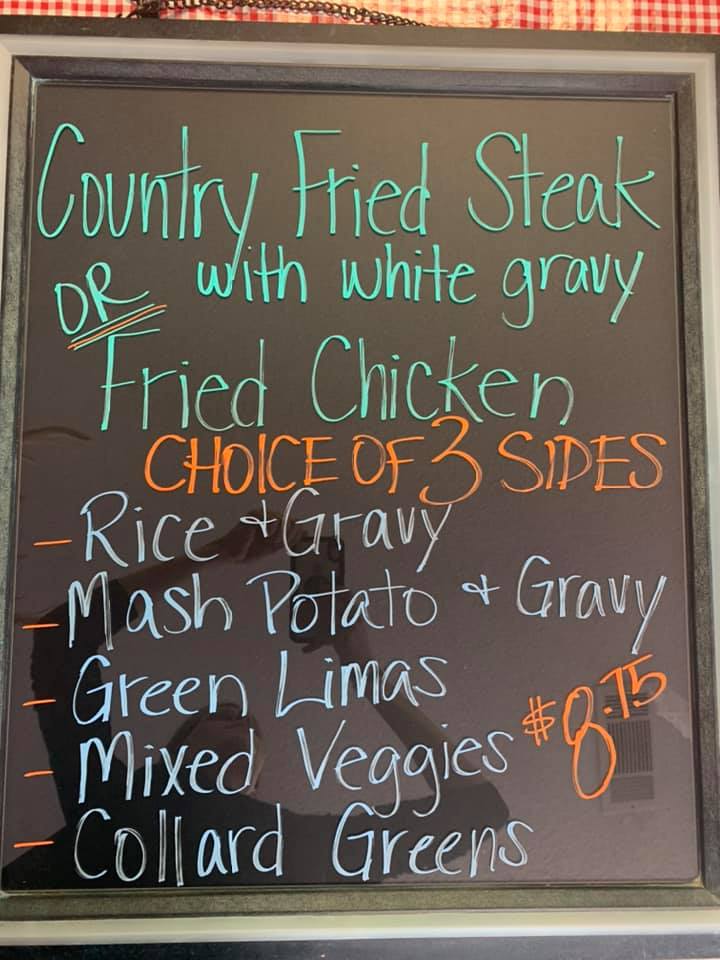 Country Fried Steak
OR with white gravy
Fried Chicken
CHOICE OF 3 SIDES
- Rice + Gravy
- Mash Potato + Gravy
- Green Limas
- Mixed Veggies $8.75
- Collard Greens